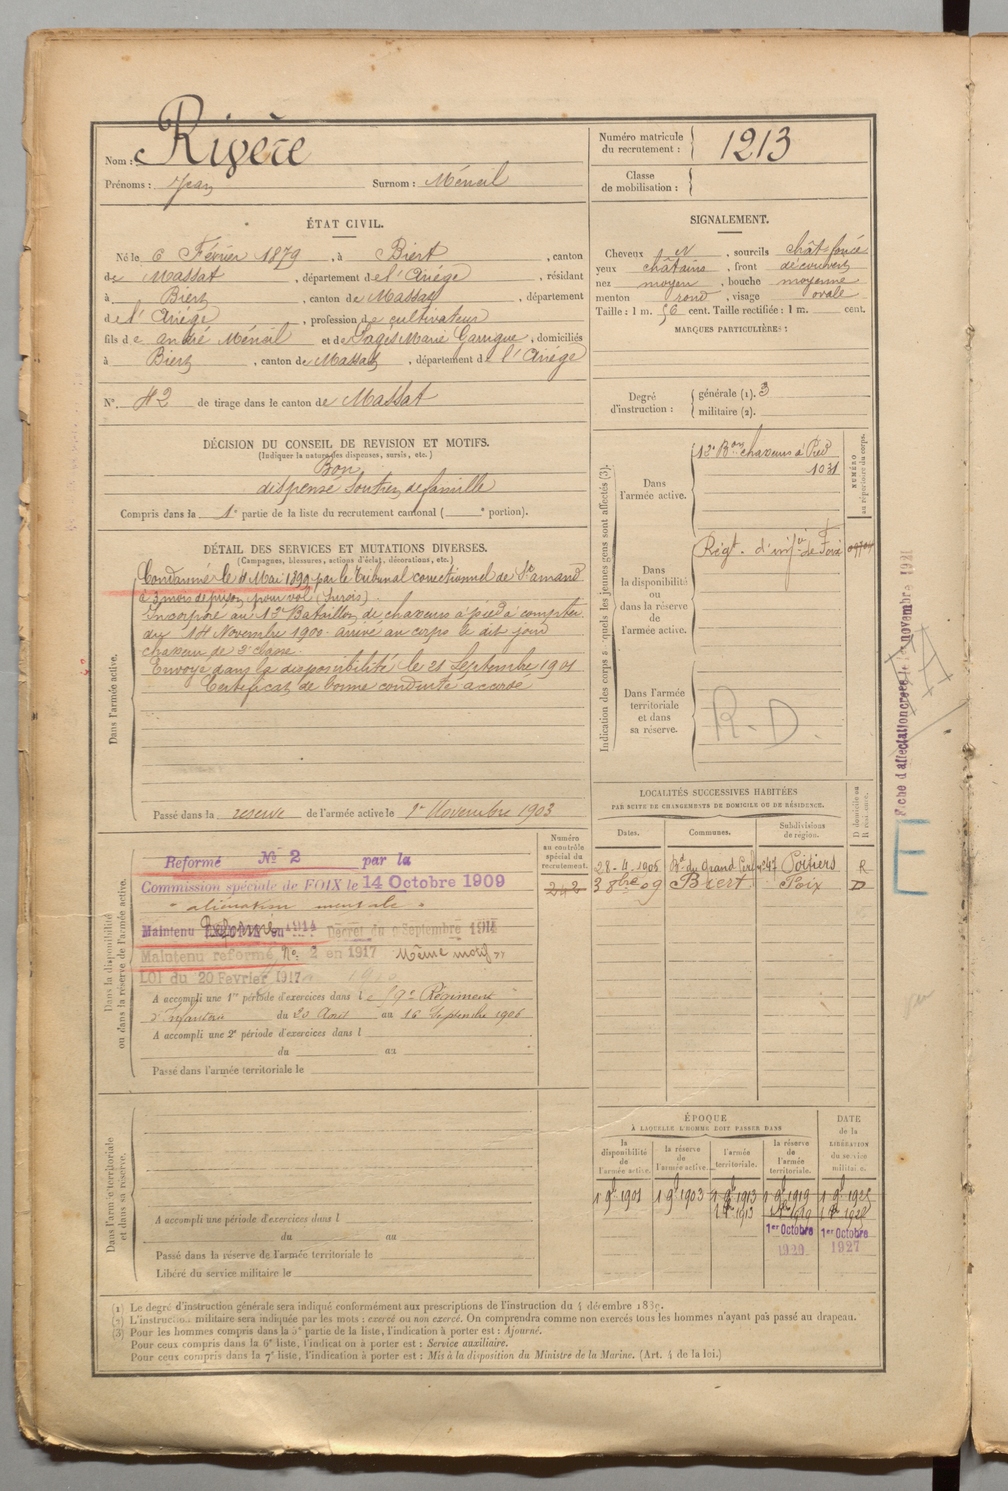 Nom : Rivère
Prénoms : Jean Surnom : Méneil
Numéro matricule du recrutement : 1213
Classe de mobilisation :
ÉTAT CIVIL.
Né le 6 Février 1879, à Biert, canton
de Massat, département de l'Ariège, résidant
à Biert, canton de Massat, département
de l'Ariège, profession de cultivateur
fils de André Méneil et de Pagès Marie Garrigue, domiciliés
à Biert, canton de Massat, département de l'Ariège
N° 42 de tirage dans le canton de Massat
SIGNALEMENT.
Cheveux N, sourcils chât-foncé
yeux châtains, front découvert
nez moyen, bouche moyenne
menton rond, visage ovale
Taille : 1 m. 56 cent. Taille rectifiée : 1 m. cent.
MARQUES PARTICULIÈRES :
Degré d'instruction : générale (1). 3
militaire (2).
DÉCISION DU CONSEIL DE REVISION ET MOTIFS.
(Indiquer la nature des dispenses, sursis, etc.)
Bon
dispensé Soutien de famille
Compris dans la 1e partie de la liste du recrutement cantonal ( e portion).
DÉTAIL DES SERVICES ET MUTATIONS DIVERSES.
(Campagnes, blessures, actions d'éclat, décorations, etc.)
Dans l'armée active.
Condamné le 4 Mai 1899 par le Tribunal correctionnel de St amand
à 3 mois de prison pour vol (Sursis)
Incorporé au 12e Bataillon de chasseurs à pied à compter
du 14 Novembre 1900 arrivé au corps le dit jour
chasseur de 2e classe.
Envoyé dans la disponibilité le 21 Septembre 1901
Certificat de bonne conduite accordé
Passé dans la réserve de l'armée active le 1er Novembre 1903
Indication des corps auxquels les jeunes gens sont affectés (3).
NUMÉRO au répertoire du corps.
Dans l'armée active.
12e Bon chasseurs à Pied
1031
Dans la disponibilité ou dans la réserve de l'armée active.
Régt. d'infie de Foix
Dans l'armée territoriale et dans sa réserve.
R.D.
Fiche d'affectation créée le 1er novembre 1921
E
LOCALITÉS SUCCESSIVES HABITÉES
PAR SUITE DE CHANGEMENTS DE DOMICILE OU DE RÉSIDENCE.
Dates. Communes. Subdivisions de région. D domicile ou R résidence.
28-4-1905 Bd du Grand Cerf n° 47 Poitiers R
3 8bre 09 Biert Foix D
Numéro au contrôle spécial du recrutement.
242
Dans la disponibilité ou dans la réserve de l'armée active.
Réformé N° 2 par la
Commission spéciale de FOIX le 14 Octobre 1909
" aliénation mentale "
Maintenu Réformé en 1914 Décret du 9 Septembre 1914
Maintenu réformé No. 2 en 1917 Même motif "
LOI du 20 Février 1917
A accompli une 1re période d'exercices dans le 59e Régiment
d'infanterie du 20 Août au 16 Septembre 1906
A accompli une 2e période d'exercices dans l
du au
Passé dans l'armée territoriale le
Dans l'armée territoriale et dans sa réserve.
A accompli une période d'exercices dans l
du au
Passé dans la réserve de l'armée territoriale le
Libéré du service militaire le
ÉPOQUE
À LAQUELLE L'HOMME DOIT PASSER DANS
la disponibilité de l'armée active. la réserve de l'armée active. l'armée territoriale. la réserve de l'armée territoriale. DATE de la LIBÉRATION du service militaire.
1 9b 1901 1 9b 1903 1 9b 1913 1 9b 1919 1 9b 1925
1er Octobre 1er Octobre
1920 1927
(1) Le degré d'instruction générale sera indiqué conformément aux prescriptions de l'instruction du 4 décembre 1889.
(2) L'instruction militaire sera indiquée par les mots : exercé ou non exercé. On comprendra comme non exercés tous les hommes n'ayant pas passé au drapeau.
(3) Pour les hommes compris dans la 5e partie de la liste, l'indication à porter est : Ajourné.
Pour ceux compris dans la 6e liste, l'indication à porter est : Service auxiliaire.
Pour ceux compris dans la 7e liste, l'indication à porter est : Mis à la disposition du Ministre de la Marine. (Art. 4 de la loi.)